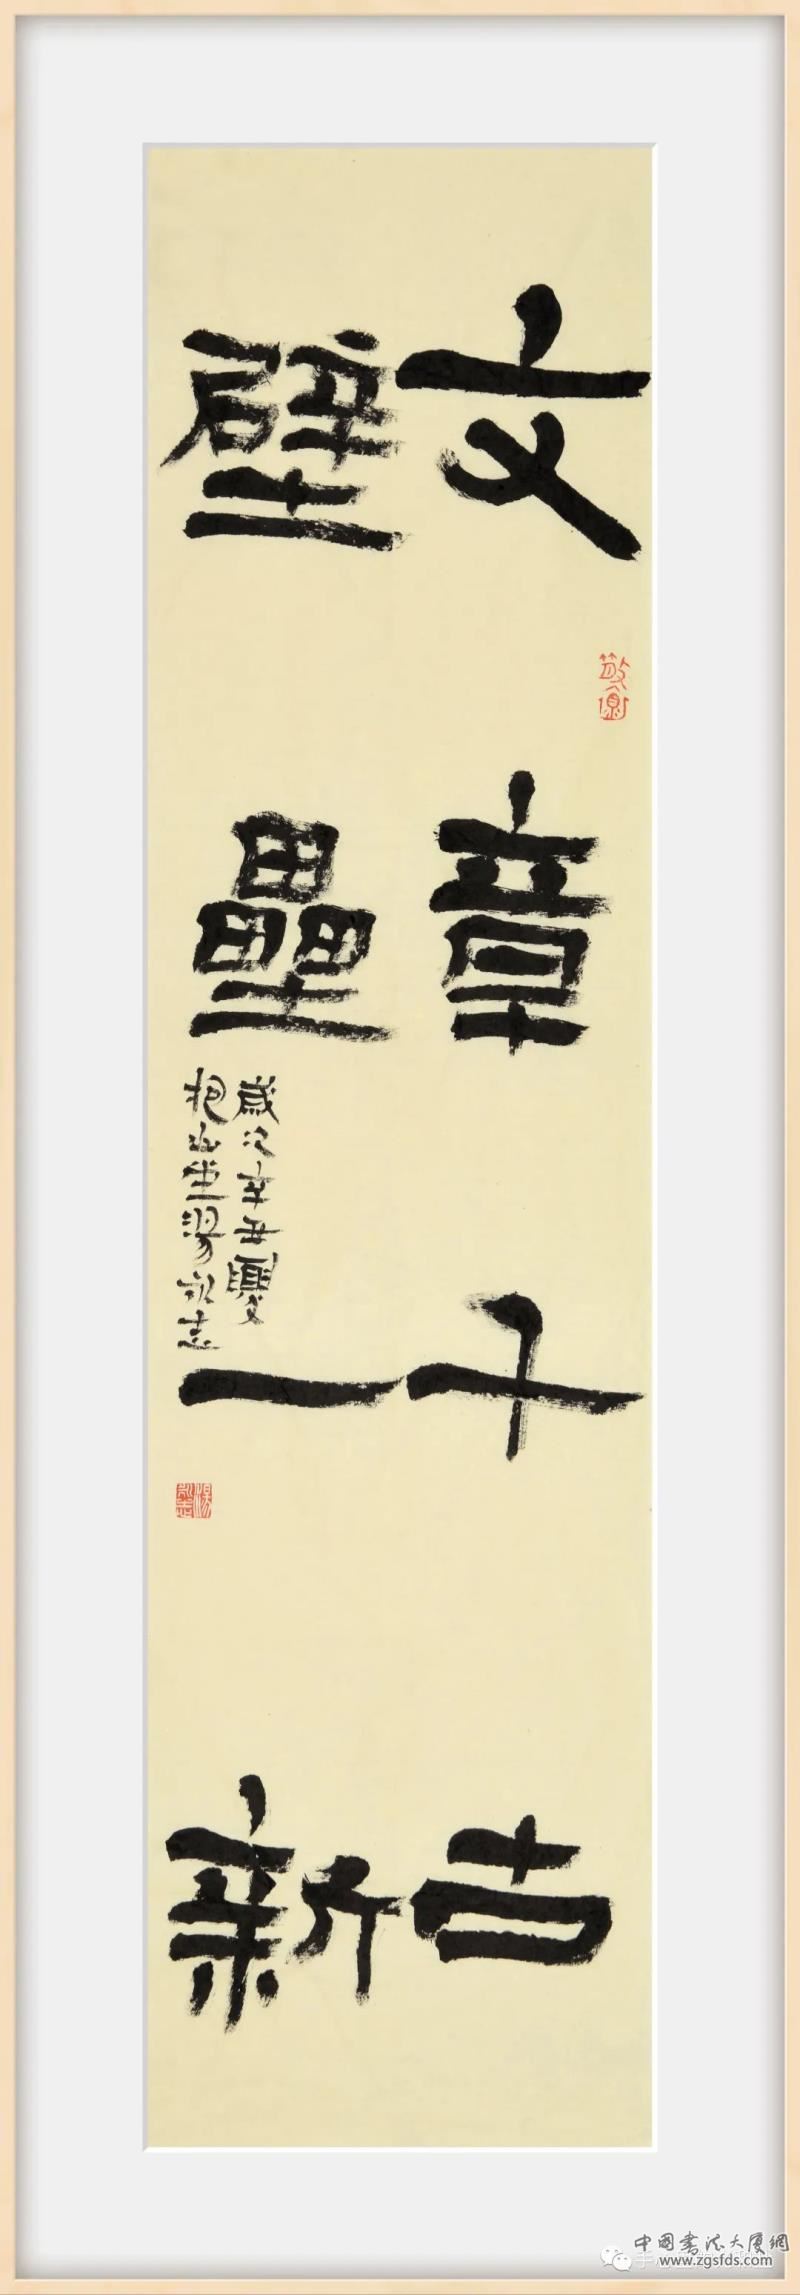 文章千古
壁壘一新
歲次辛丑夏
抱山堂湯永志
中國書法大廈網
www.zgsfds.com